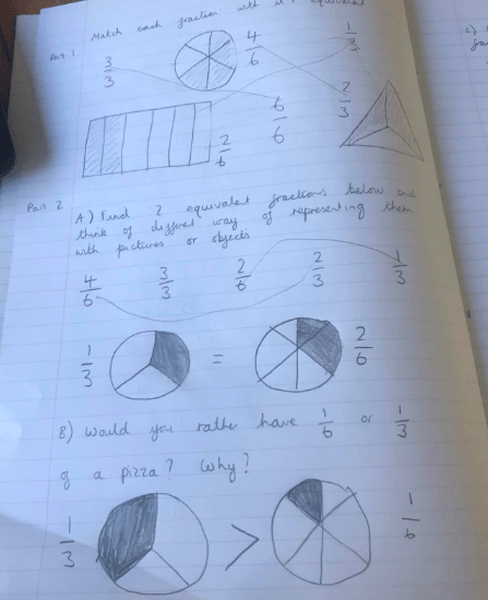 Part 1
Match each fraction with it's equivalent
3/3
4/6
1/3
6/6
2/3
2/6
Part 2
A) Find 2 equivalent fractions below and
think of different way of representing them
with pictures or objects
4/6 3/3 2/6 2/3 1/3
1/3 = 2/6
B) Would you rather have 1/6 or 1/3
of a pizza? Why?
1/3 > 1/6
c)